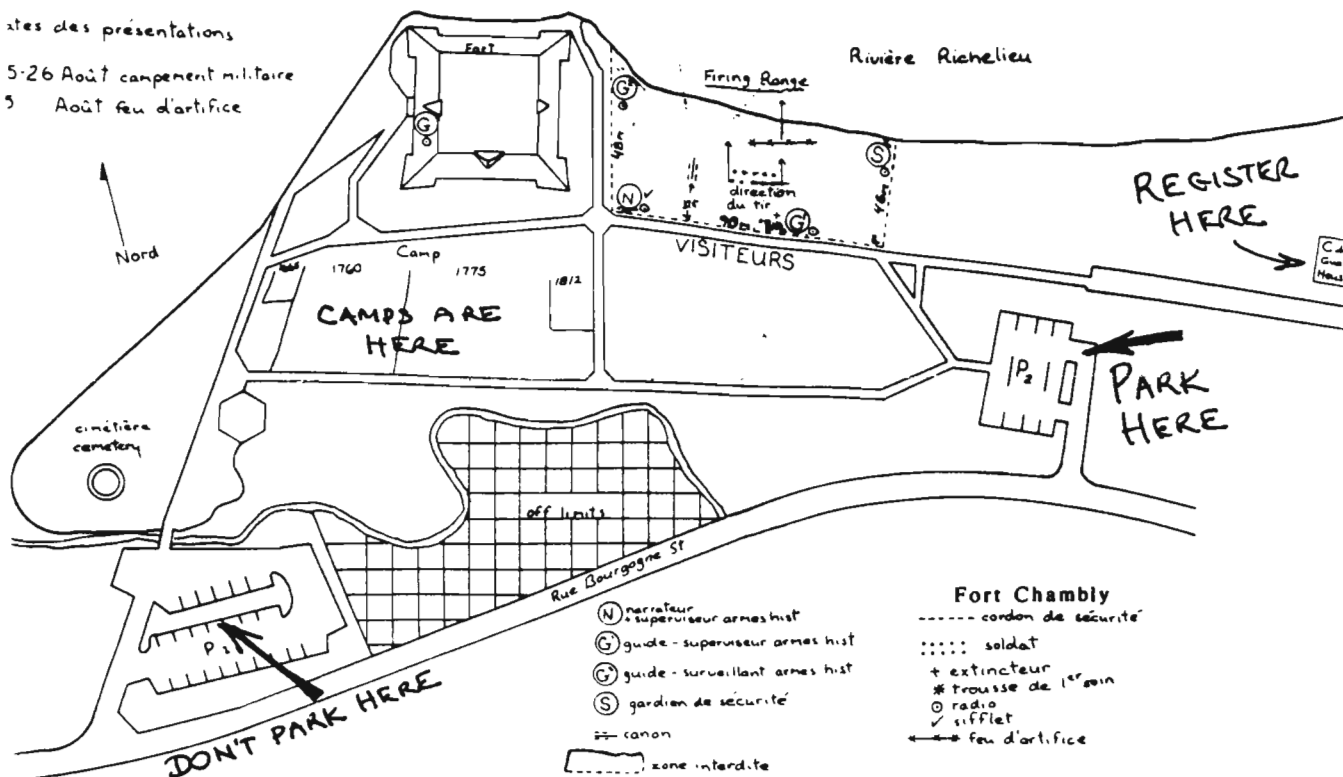 des présentations
5-26 Août campement militaire
Août feu d'artifice
Nord
Fort
Rivière Richelieu
Firing Range
G
G
S
48m
46m
N
direction
du tir
90m
G
VISITEURS
REGISTER
HERE
Camp
1760
1775
1812
CAMPS ARE
HERE
P2
PARK
HERE
cimétière
cemetery
off limits
Rue Bourgogne St
P
DON'T PARK HERE
N narrateur
+ superviseur armes hist
G guide - superviseur armes hist
G guide - surveillant armes hist
S gardien de sécurité
canon
zone interdite
Fort Chambly
cordon de sécurité
soldat
+ extincteur
* trousse de 1er soin
radio
✓ sifflet
feu d'artifice